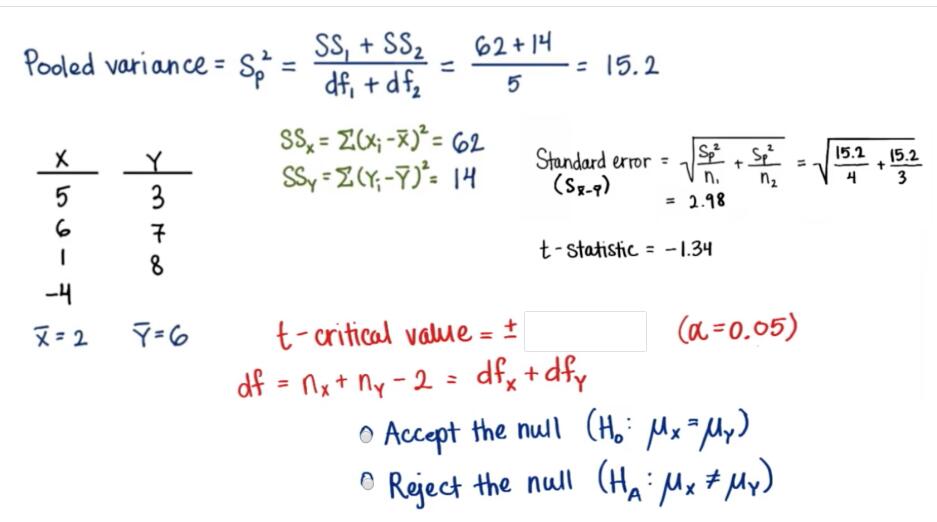 Pooled variance = Sp² = (SS₁ + SS₂)/(df₁ + df₂) = (62+14)/5 = 15.2
SSₓ = Σ(xᵢ-x̄)² = 62
SSY = Σ(Yᵢ-Ȳ)² = 14
Standard error = √(Sp²/n₁ + Sp²/n₂) = √(15.2/4 + 15.2/3)
(Sx̄-ȳ)
= 2.98
t-statistic = -1.34
X Y
5 3
6 7
1 8
-4
X̄=2 Ȳ=6
t-critical value = ± (α=0.05)
df = nₓ + nY - 2 = dfₓ + dfY
Accept the null (H₀: μₓ=μY)
Reject the null (HA: μₓ≠μY)